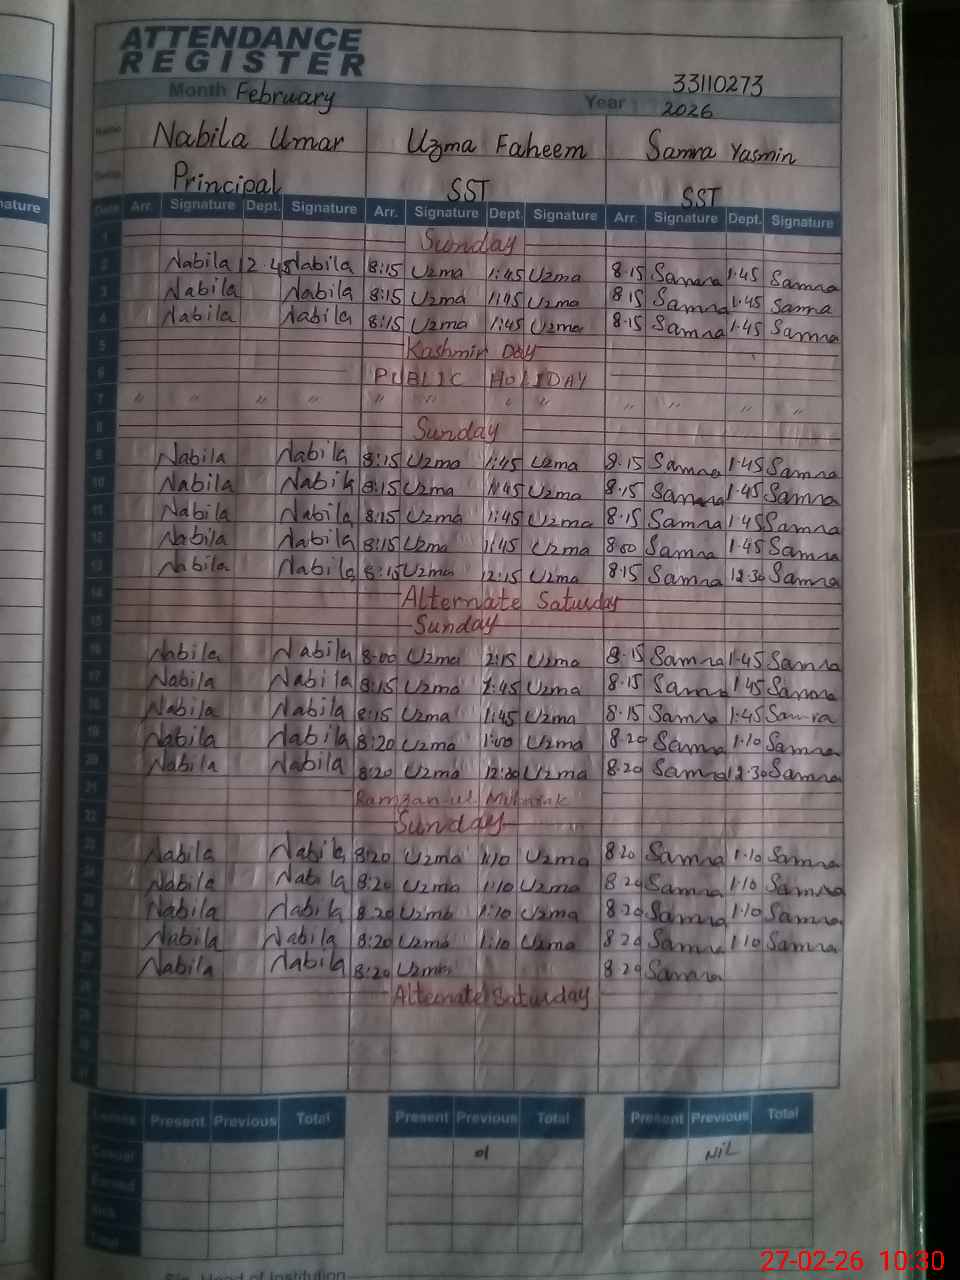 ATTENDANCE
REGISTER
33110273
Month February Year 2026
Name Nabila Umar Uzma Faheem Samra Yasmin
Principal SST SST
Date Arr. Signature Dept. Signature Arr. Signature Dept. Signature Arr. Signature Dept. Signature
1 Sunday
2 Nabila 12.45 Nabila 8:15 Uzma 1:45 Uzma 8.15 Samra 1.45 Samra
3 Nabila Nabila 8:15 Uzma 1:45 Uzma 8.15 Samra 1.45 Samra
4 Nabila Nabila 8:15 Uzma 1:45 Uzma 8.15 Samra 1.45 Samra
5 Kashmir Day
6 PUBLIC HOLIDAY
7 " " " " " " " " " " " "
8 Sunday
9 Nabila Nabila 8:15 Uzma 1:45 Uzma 8.15 Samra 1.45 Samra
10 Nabila Nabila 8:15 Uzma 1:45 Uzma 8.15 Samra 1.45 Samra
11 Nabila Nabila 8:15 Uzma 1:45 Uzma 8.15 Samra 1.45 Samra
12 Nabila Nabila 8:15 Uzma 1:45 Uzma 8.00 Samra 1.45 Samra
13 Nabila Nabila 8:15 Uzma 12:15 Uzma 8.15 Samra 12.30 Samra
14 Alternate Saturday
15 Sunday
16 Nabila Nabila 8:00 Uzma 2:15 Uzma 8.15 Samra 1.45 Samra
17 Nabila Nabila 8:15 Uzma 1:45 Uzma 8.15 Samra 1.45 Samra
18 Nabila Nabila 8:15 Uzma 1:45 Uzma 8.15 Samra 1:45 Samra
19 Nabila Nabila 8:20 Uzma 1:00 Uzma 8.20 Samra 1.10 Samra
20 Nabila Nabila 8:20 Uzma 12:30 Uzma 8.20 Samra 12.30 Samra
21 Ramzan-ul Mubarak
22 Sunday
23 Nabila Nabila 8:20 Uzma 1:10 Uzma 8.20 Samra 1.10 Samra
24 Nabila Nabila 8:20 Uzma 1:10 Uzma 8.20 Samra 1.10 Samra
25 Nabila Nabila 8.20 Uzma 1:10 Uzma 8.20 Samra 1.10 Samra
26 Nabila Nabila 8:20 Uzma 1:10 Uzma 8.20 Samra 1.10 Samra
27 Nabila Nabila 8:20 Uzma 8.20 Samra
28 Alternate Saturday
29
30
31
Leaves Present Previous Total Present Previous Total Present Previous Total
Casual 01 Nil
Earned
Sick
Total
Sig. Head of Institution
nature
27-02-26 10:30